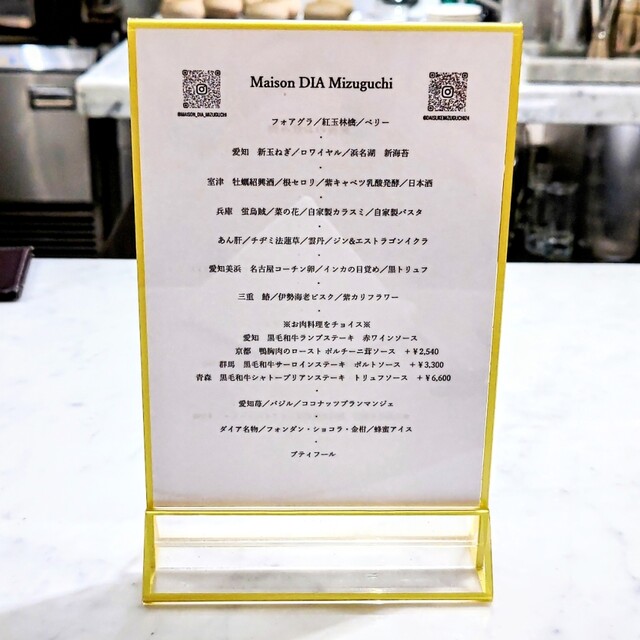 Maison DIA Mizuguchi
@MAISON_DIA_MIZUGUCHI
@DAISUKEMIZUGUCHI24
フォアグラ／紅玉林檎／ベリー
愛知　新玉ねぎ／ロワイヤル／浜名湖　新海苔
室津　牡蠣紹興酒／根セロリ／紫キャベツ乳酸発酵／日本酒
兵庫　蛍烏賊／菜の花／自家製カラスミ／自家製パスタ
あん肝／チヂミ法蓮草／雲丹／ジン&エストラゴンイクラ
愛知美浜　名古屋コーチン卵／インカの目覚め／黒トリュフ
三重　鰆／伊勢海老ビスク／紫カリフラワー
※お肉料理をチョイス※
愛知　黒毛和牛ランプステーキ　赤ワインソース
京都　鴨胸肉のロースト ポルチーニ茸ソース　+￥2,540
群馬　黒毛和牛サーロインステーキ　ポルトソース　+￥3,300
青森　黒毛和牛シャトーブリアンステーキ　トリュフソース　+￥6,600
愛知苺／バジル／ココナッツブランマンジェ
ダイア名物／フォンダン・ショコラ・金柑／蜂蜜アイス
プティフール